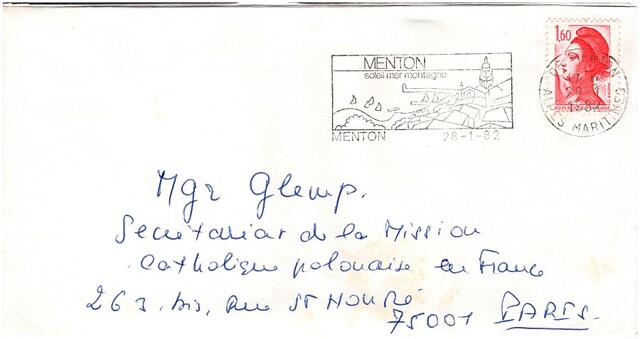 MENTON
soleil mer montagne
MENTON 28-1-82
1,60
ALPES MARITIMES
Mgr Glemp.
Secrétariat de la Mission
Catholique polonaise en France
263 bis, rue St Honoré
75001 PARIS.